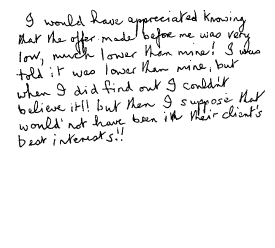 I would have appreciated knowing
that the offer made before me was very
low, much lower than mine! I was
told it was lower than mine, but
when I did find out I couldn't
believe it!! but then I suppose that
would not have been in their client's
best interests!!